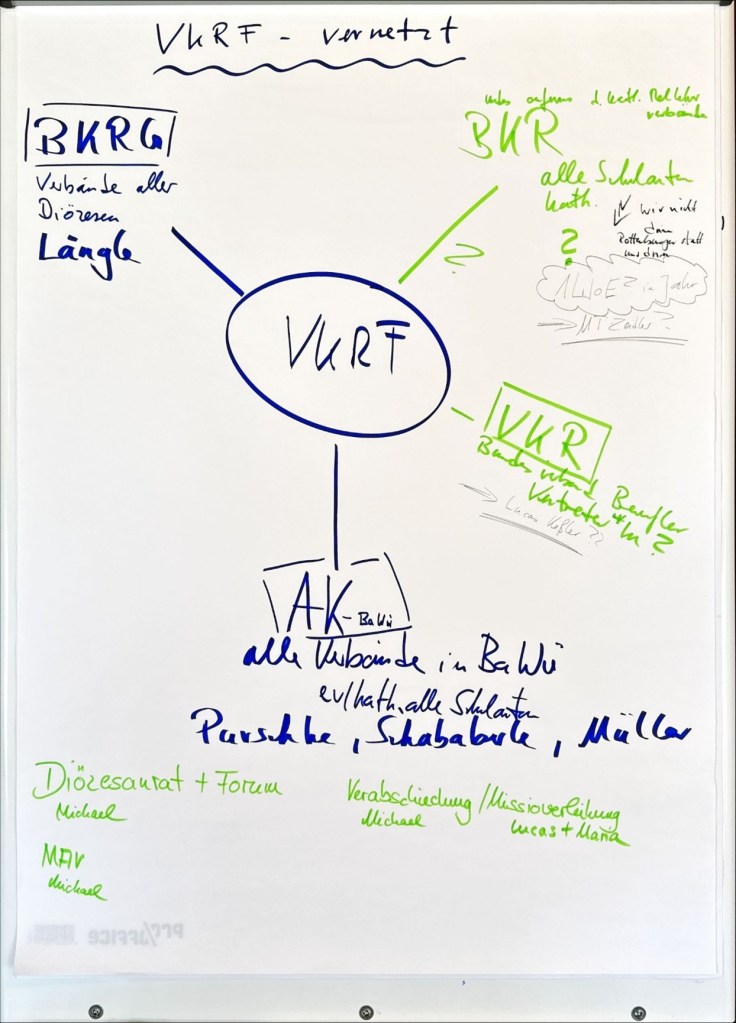 VKRF - vernetzt
BKRG
Verbände aller
Diözesen
Längle
d. kath. Rel lehr
verbände
BKR
alle Schularten
kath.
?
wir nicht
dann
Rottenburger statt
?
1 WoE? im Jahr
→ MT Zeidler?
VKRF
VKR
Bundesverband Berufler
Vertreter*In?
→ Lucas Keßler??
AK-BaWü
alle Verbände in BaWü
ev/kath, alle Schularten
Purschke, Schababerle, Müller
Diözesanrat + Forum
Michael
Verabschiedung/Missioverleihung
Michael Lucas + Maria
MAV
Michael